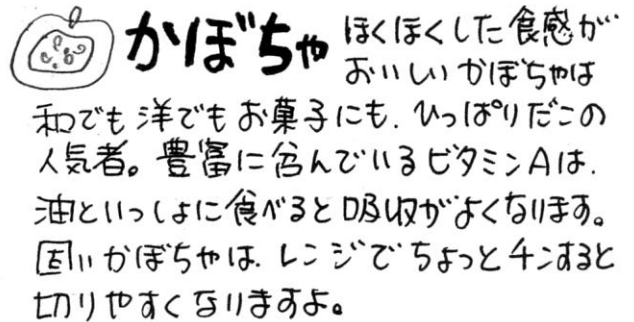 かぼちゃ
ほくほくした食感が
おいしいかぼちゃは
和でも洋でもお菓子にも、ひっぱりだこの
人気者。豊富に含んでいるビタミンAは、
油といっしょに食べると吸収がよくなります。
固いかぼちゃは、レンジでちょっとチンすると
切りやすくなりますよ。